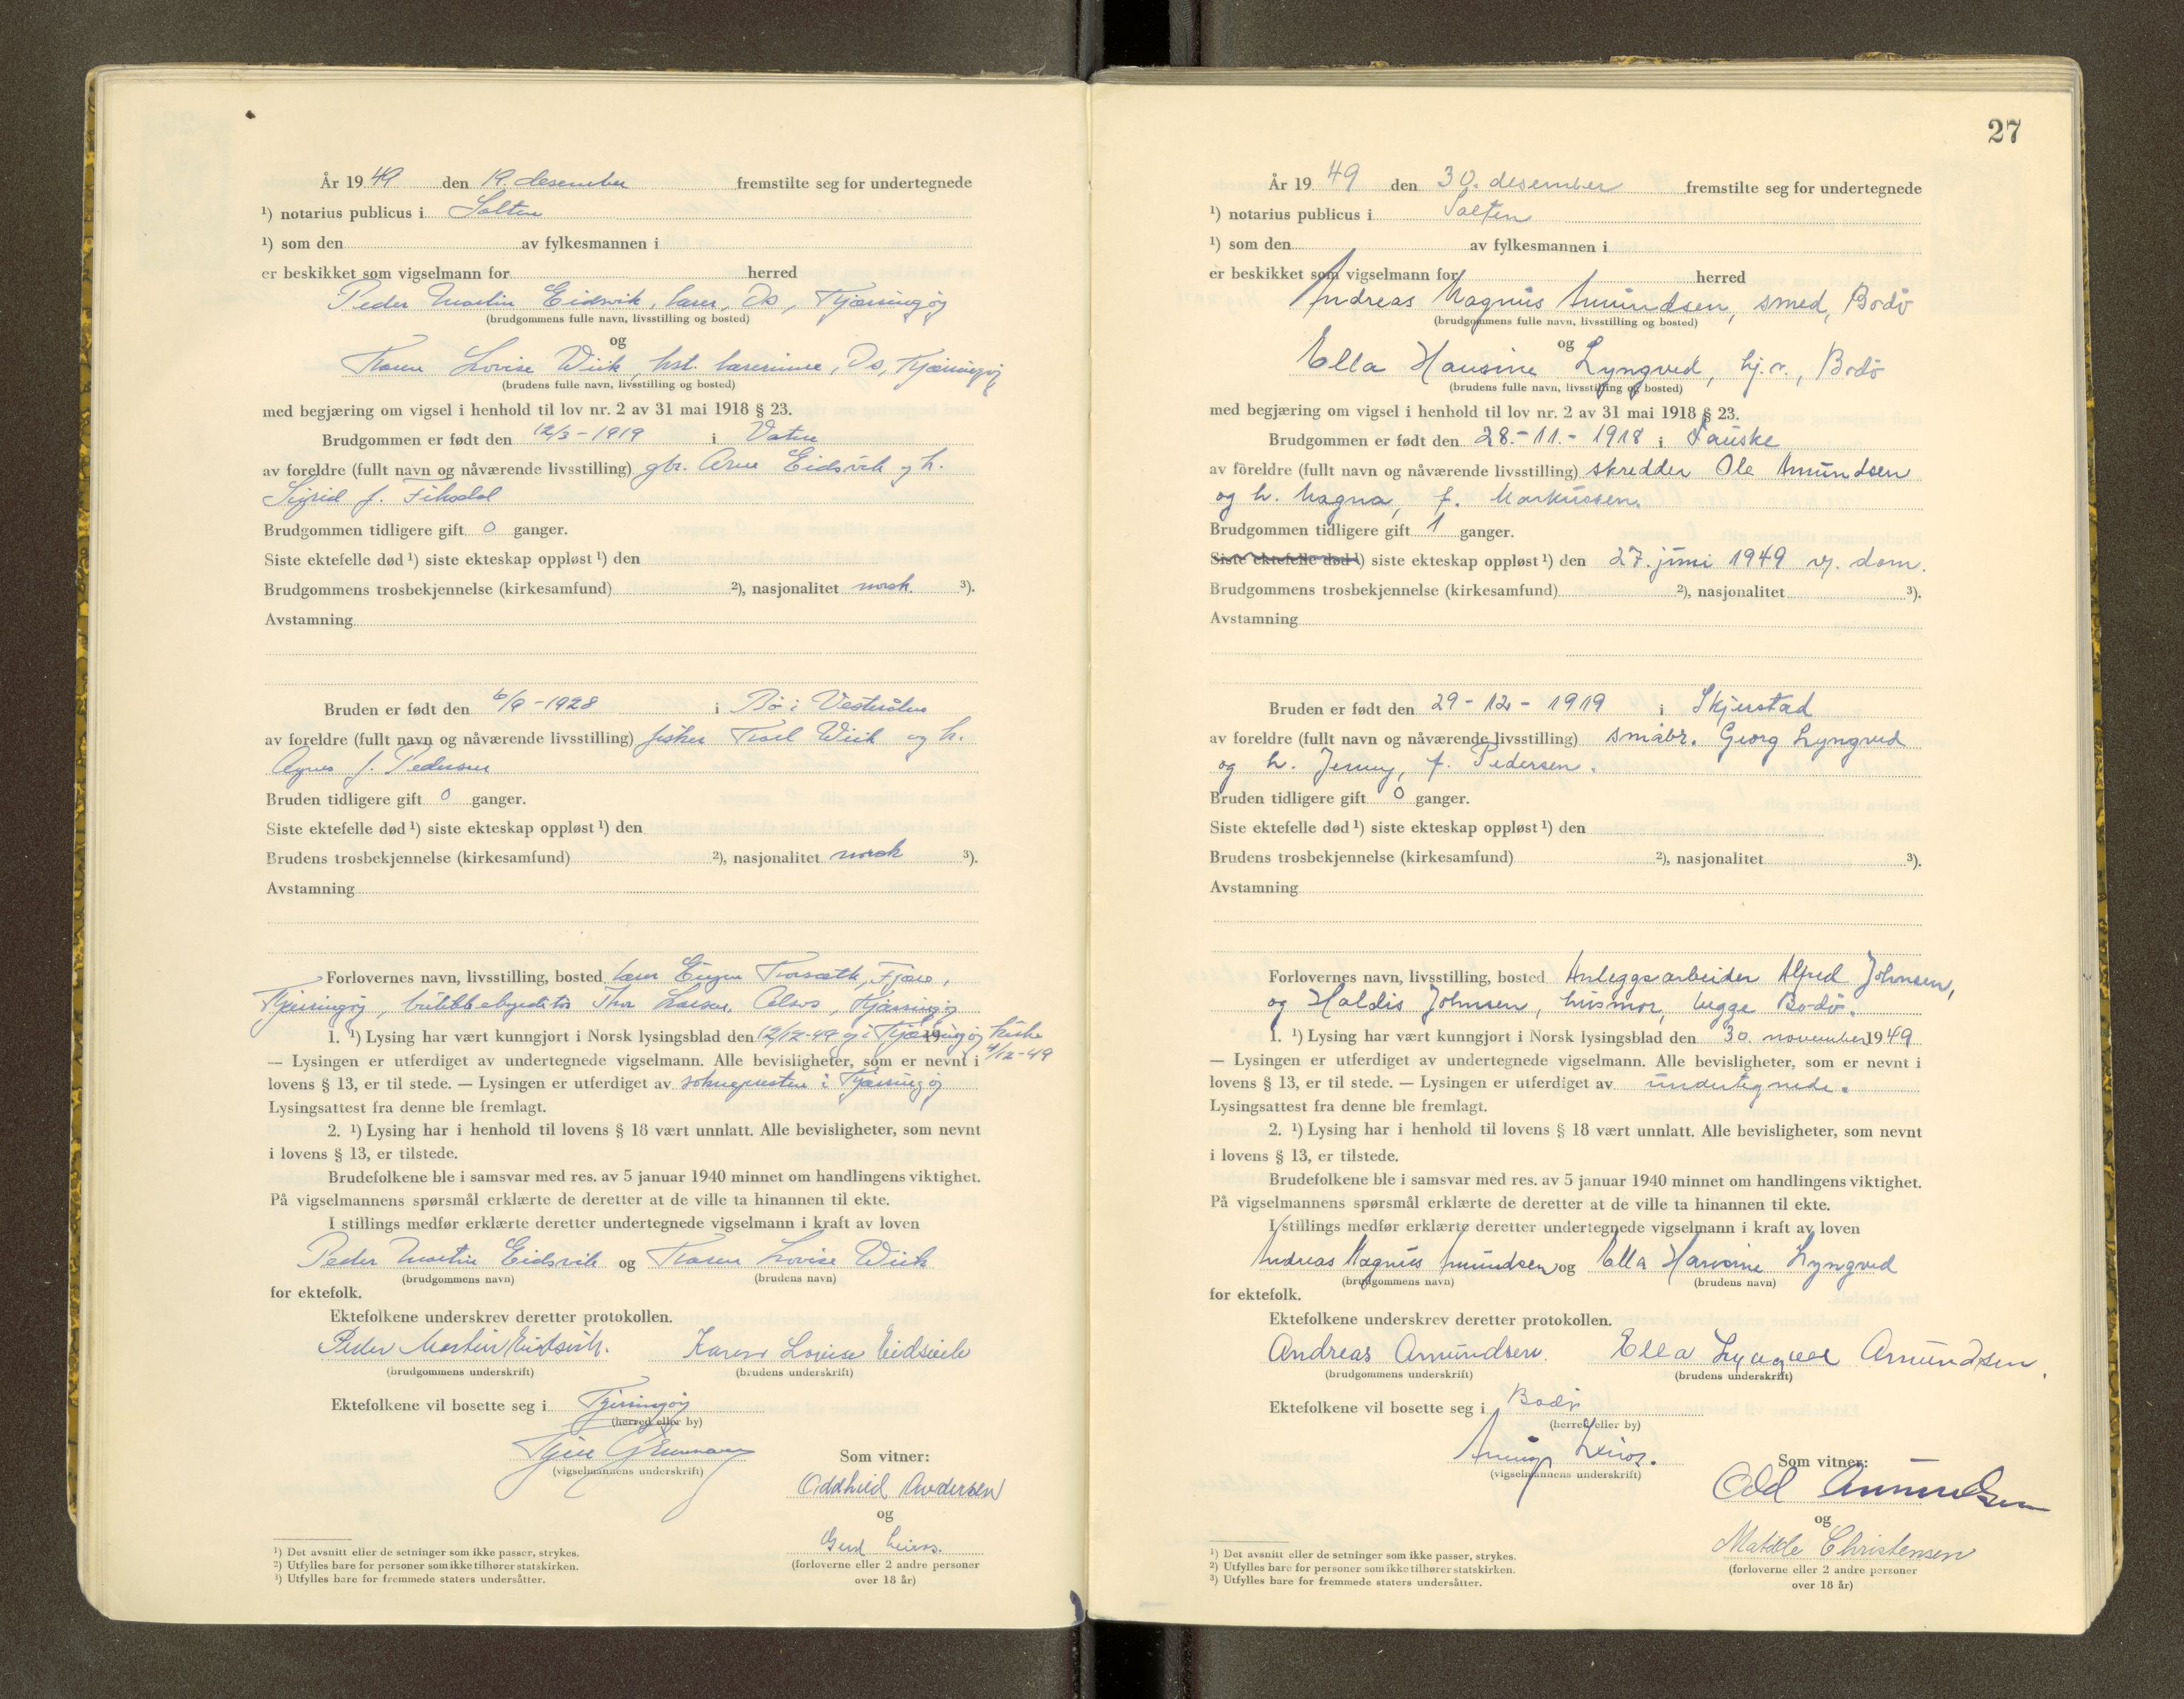 År 19 49 den 19. desember fremstilte seg for undertegnede
¹) notarius publicus i Salten
¹) som den av fylkesmannen i
er beskikket som vigselmann for herred
Peder Martin Eidsvik, lærer, Os, Kjerringøy
(brudgommens fulle navn, livsstilling og bosted)
og
Karen Lovise Wiik, hst. lærerinne, Os, Kjerringøy
(brudens fulle navn, livsstilling og bosted)
med begjæring om vigsel i henhold til lov nr. 2 av 31 mai 1918 § 23.
Brudgommen er født den 12/3 - 1919 i Vatne
av foreldre (fullt navn og nåværende livsstilling) gbr. Arne Eidsvik og h.
Sigrid f. Fiksdal
Brudgommen tidligere gift 0 ganger.
Siste ektefelle død ¹) siste ekteskap oppløst ¹) den
Brudgommens trosbekjennelse (kirkesamfund) ²), nasjonalitet norsk ³).
Avstamning
Bruden er født den 6/9 - 1928 i Bø i Vesterålen
av foreldre (fullt navn og nåværende livsstilling) fisker Karl Wiik og h.
Agnes f. Pedersen
Bruden tidligere gift 0 ganger.
Siste ektefelle død ¹) siste ekteskap oppløst ¹) den
Brudens trosbekjennelse (kirkesamfund) ²), nasjonalitet norsk ³).
Avstamning
Forlovernes navn, livsstilling, bosted lærer Fjære,
Kjerringøy, Thor Larsen, Kjerringøy
1. ¹) Lysing har vært kunngjort i Norsk lysingsblad den 12/12-49 og i Kjerringøy kirke 19
4/12-49
— Lysingen er utferdiget av undertegnede vigselmann. Alle bevisligheter, som er nevnt i
lovens § 13, er til stede. — Lysingen er utferdiget av soknepresten i Kjerringøy
Lysingsattest fra denne ble fremlagt.
2. ¹) Lysing har i henhold til lovens § 18 vært unnlatt. Alle bevisligheter, som nevnt
i lovens § 13, er tilstede.
Brudefolkene ble i samsvar med res. av 5 januar 1940 minnet om handlingens viktighet.
På vigselmannens spørsmål erklærte de deretter at de ville ta hinannen til ekte.
I stillings medfør erklærte deretter undertegnede vigselmann i kraft av loven
Peder Martin Eidsvik og Karen Lovise Wiik
(brudgommens navn) (brudens navn)
for ektefolk.
Ektefolkene underskrev deretter protokollen.
Peder Martin Eidsvik. Karen Lovise Eidsvik
(brudgommens underskrift) (brudens underskrift)
Ektefolkene vil bosette seg i Kjerringøy
(herred eller by)
(vigselmannens underskrift)
Som vitner:
Oddhild Andersen
og
(forloverne eller 2 andre personer
over 18 år)
¹) Det avsnitt eller de setninger som ikke passer, strykes.
²) Utfylles bare for personer som ikke tilhører statskirken.
³) Utfylles bare for fremmede staters undersåtter.
27
År 19 49 den 30. desember fremstilte seg for undertegnede
¹) notarius publicus i Salten
¹) som den av fylkesmannen i
er beskikket som vigselmann for herred
Andreas Magnus Amundsen, smed, Bodø
(brudgommens fulle navn, livsstilling og bosted)
og
Ella Hansine Lyngved, hj.v., Bodø
(brudens fulle navn, livsstilling og bosted)
med begjæring om vigsel i henhold til lov nr. 2 av 31 mai 1918 § 23.
Brudgommen er født den 28.-11.- 1918 i Fauske
av foreldre (fullt navn og nåværende livsstilling) skredder Ole Amundsen
og h. Magna, f. Markussen.
Brudgommen tidligere gift 1 ganger.
Siste ektefelle død ¹) siste ekteskap oppløst ¹) den 27. juni 1949 v. dom.
Brudgommens trosbekjennelse (kirkesamfund) ²), nasjonalitet ³).
Avstamning
Bruden er født den 29 - 12 - 1919 i Skjerstad
av foreldre (fullt navn og nåværende livsstilling) småbr. Georg Lyngved
og h. Jenny, f. Pedersen.
Bruden tidligere gift 0 ganger.
Siste ektefelle død ¹) siste ekteskap oppløst ¹) den
Brudens trosbekjennelse (kirkesamfund) ²), nasjonalitet ³).
Avstamning
Forlovernes navn, livsstilling, bosted Anleggsarbeider Alfred Johnsen,
og Haldis Johnsen, husmor, begge Bodø.
1. ¹) Lysing har vært kunngjort i Norsk lysingsblad den 30. november 1949
— Lysingen er utferdiget av undertegnede vigselmann. Alle bevisligheter, som er nevnt i
lovens § 13, er til stede. — Lysingen er utferdiget av undertegnede.
Lysingsattest fra denne ble fremlagt.
2. ¹) Lysing har i henhold til lovens § 18 vært unnlatt. Alle bevisligheter, som nevnt
i lovens § 13, er tilstede.
Brudefolkene ble i samsvar med res. av 5 januar 1940 minnet om handlingens viktighet.
På vigselmannens spørsmål erklærte de deretter at de ville ta hinannen til ekte.
I stillings medfør erklærte deretter undertegnede vigselmann i kraft av loven
Andreas Magnus Amundsen og Ella Hansine Lyngved
(brudgommens navn) (brudens navn)
for ektefolk.
Ektefolkene underskrev deretter protokollen.
Andreas Amundsen. Ella Lyngved Amundsen.
(brudgommens underskrift) (brudens underskrift)
Ektefolkene vil bosette seg i Bodø
(herred eller by)
(vigselmannens underskrift)
Som vitner:
Odd Amundsen
og
Matilde Christensen
(forloverne eller 2 andre personer
over 18 år)
¹) Det avsnitt eller de setninger som ikke passer, strykes.
²) Utfylles bare for personer som ikke tilhører statskirken.
³) Utfylles bare for fremmede staters undersåtter.